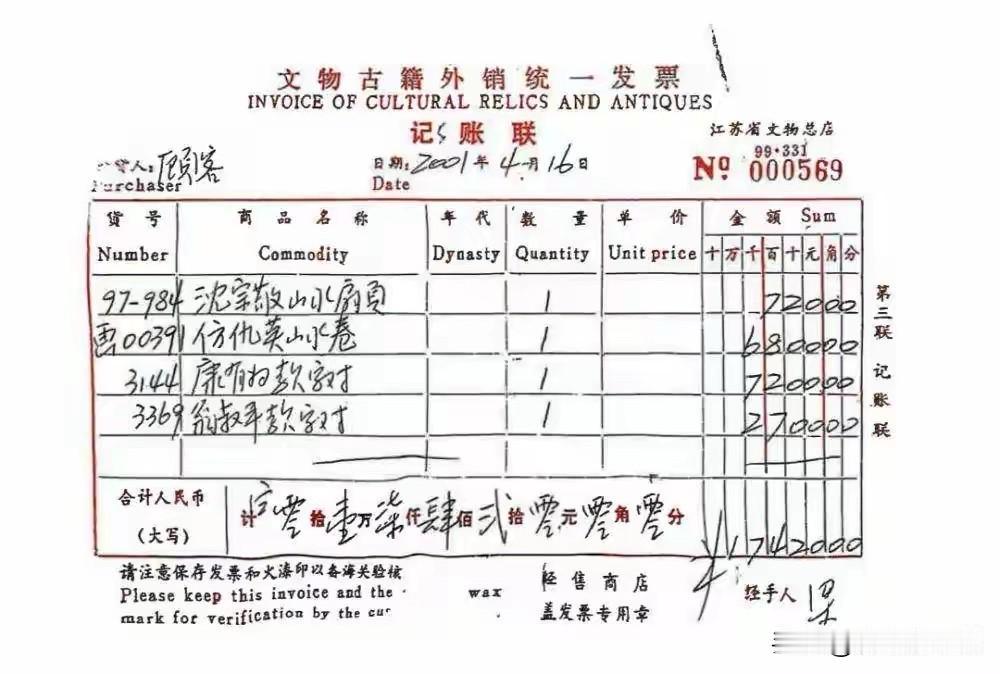 文物古籍外销统一发票
INVOICE OF CULTURAL RELICS AND ANTIQUES
记账联
江苏省文物总店
99·331
Nº 000569
货人：顾客 日期：2001年4月16日
Purchaser Date
货号 商品名称 年代 数量 单价 金额 Sum
Number Commodity Dynasty Quantity Unit price 十 万 千 百 十 元 角 分
97-984 沈宗敬山水扇页 1 72000
00391 仿仇英山水卷 1 680000
3144 康有为款字对 1 720000
3369 翁叔平款字对 1 270000
合计人民币
(大写)
计 零拾壹万柒仟肆佰贰拾零元零角零分 ¥1742000
请注意保存发票和火漆印以备海关验核
Please keep this invoice and the wax
mark for verification by the
经售商店
盖发票专用章
经手人
第三联 记账联